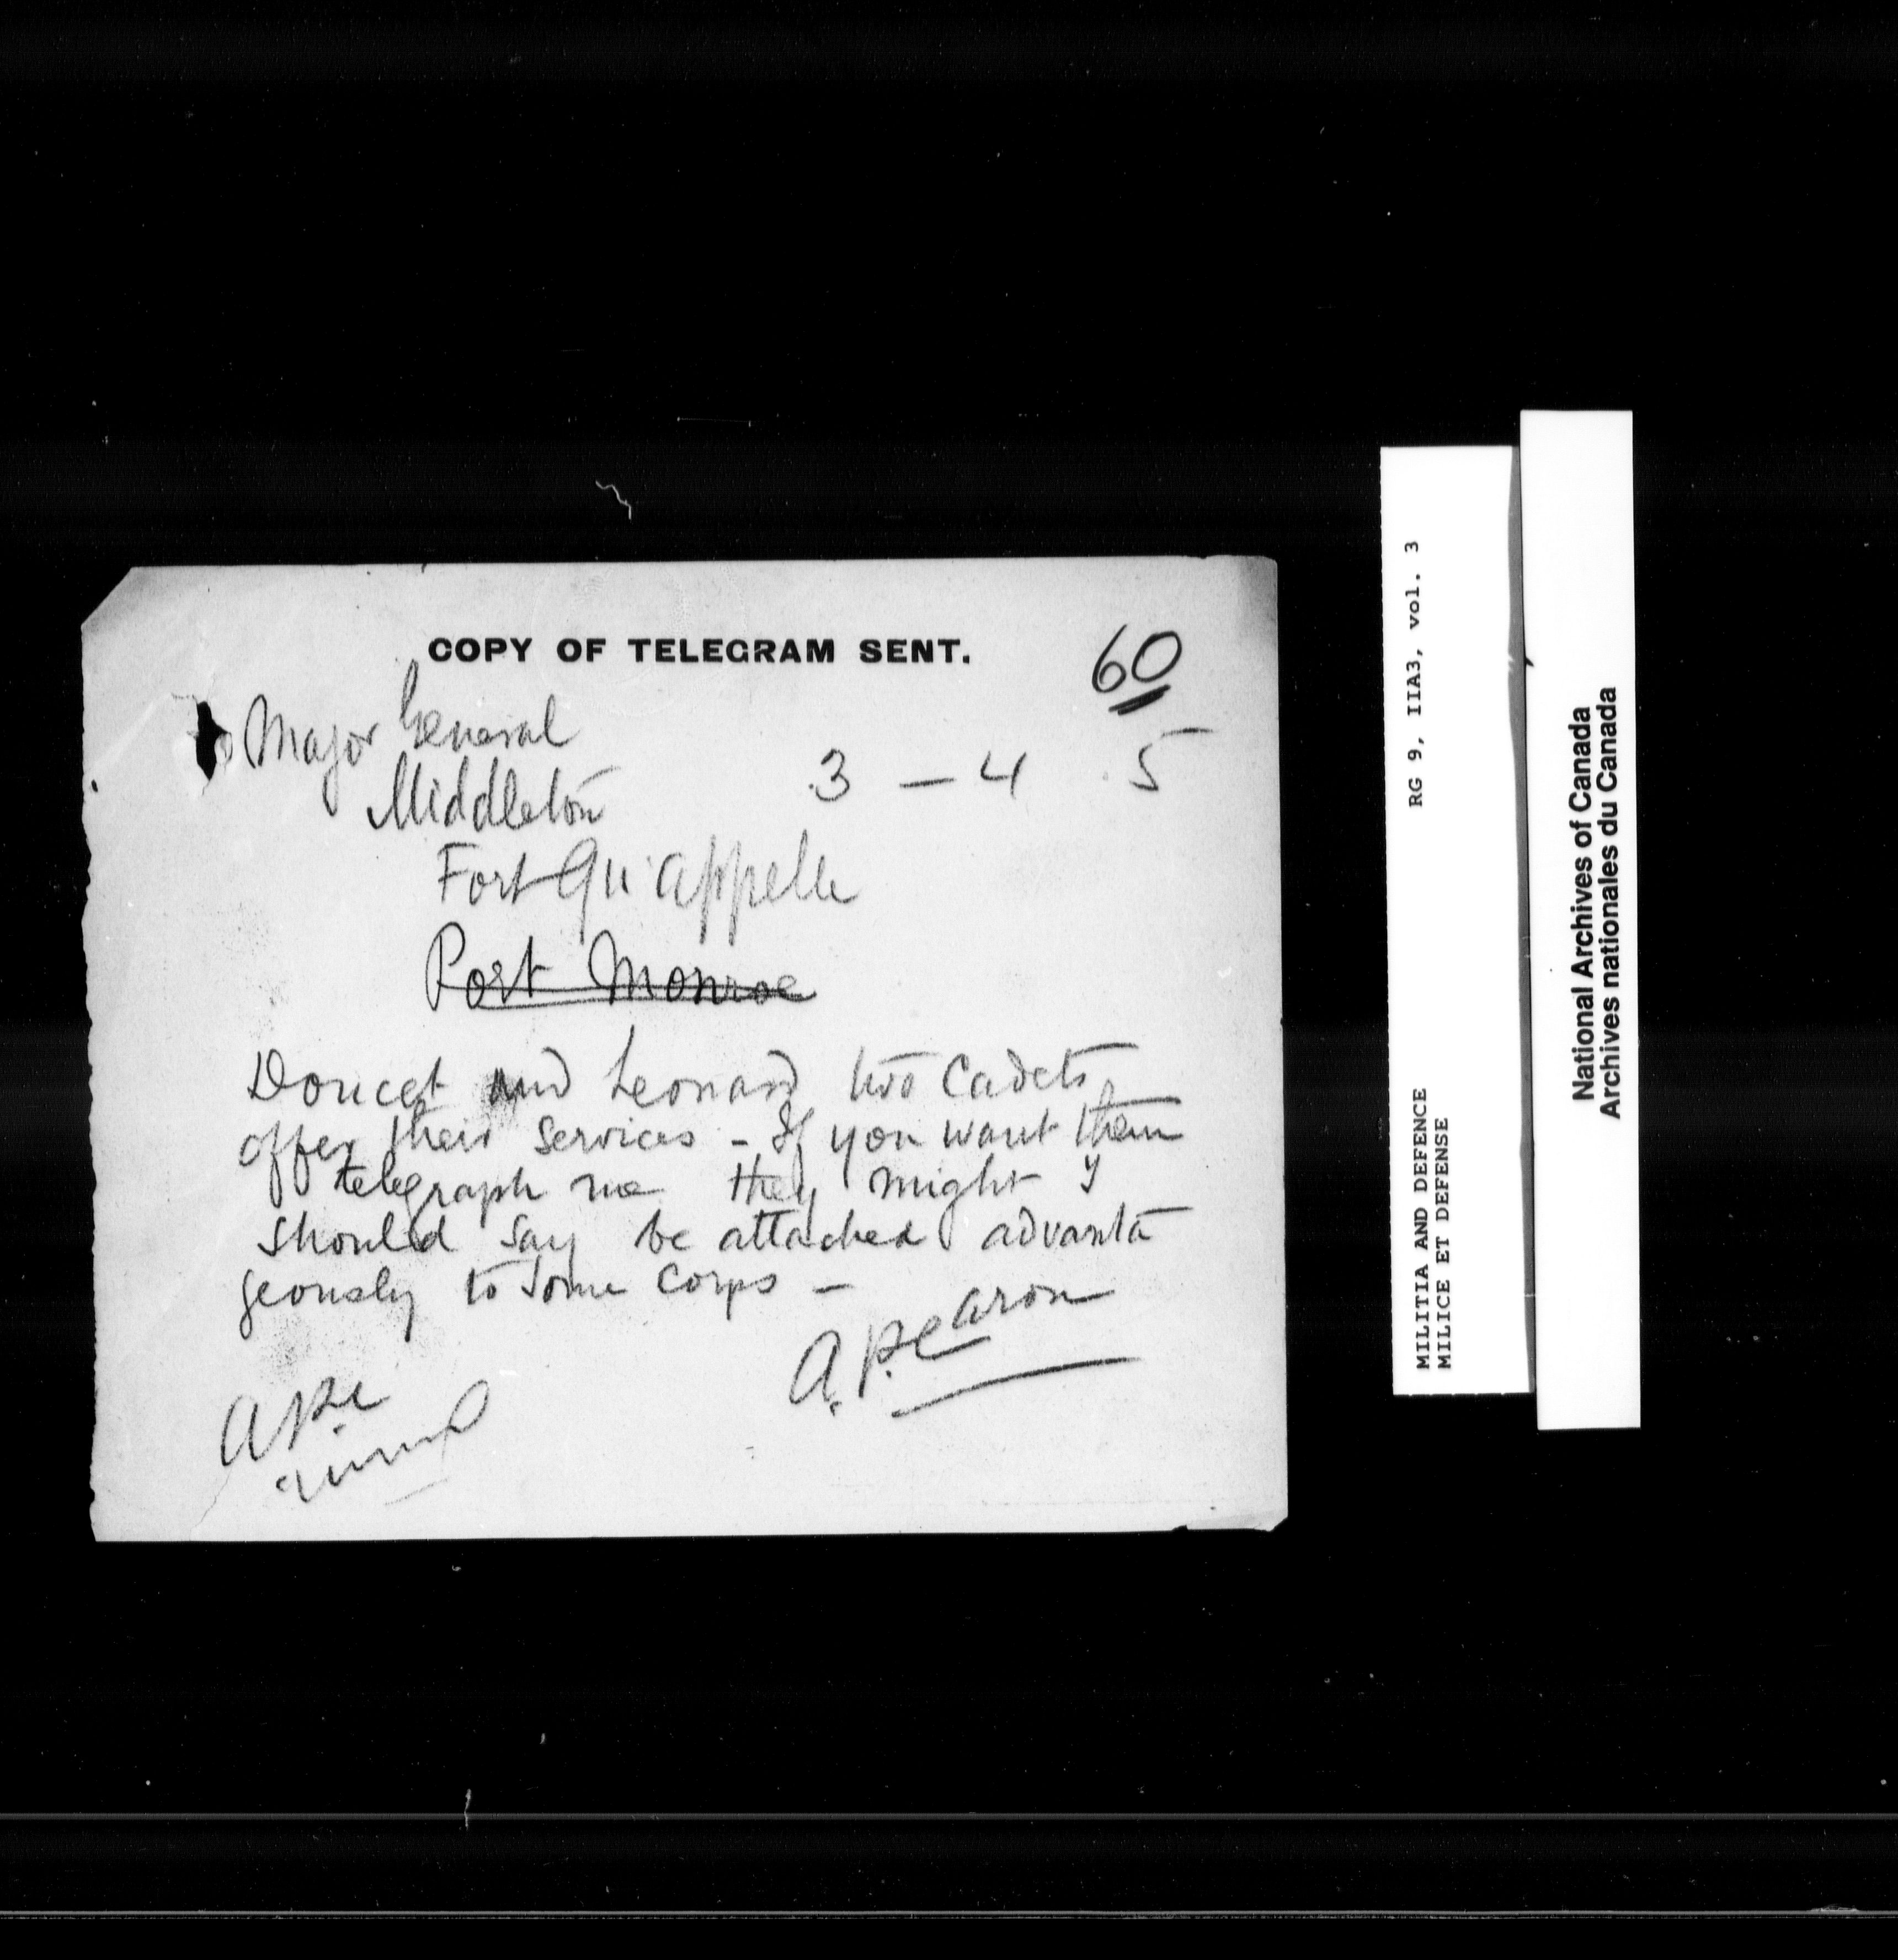 COPY OF TELEGRAM SENT.
60
To Major General
Middleton
3 - 4 5
Fort Qu'appelle
Port Monroe
Doucet and Leonard two Cadets
offer their services - If you want them
telegraph me they might I
should say be attached advanta
geously to some Corps -
A. P. Caron
A P C
RG 9, IIA3, vol. 3
MILITIA AND DEFENCE
MILICE ET DEFENSE
National Archives of Canada
Archives nationales du Canada